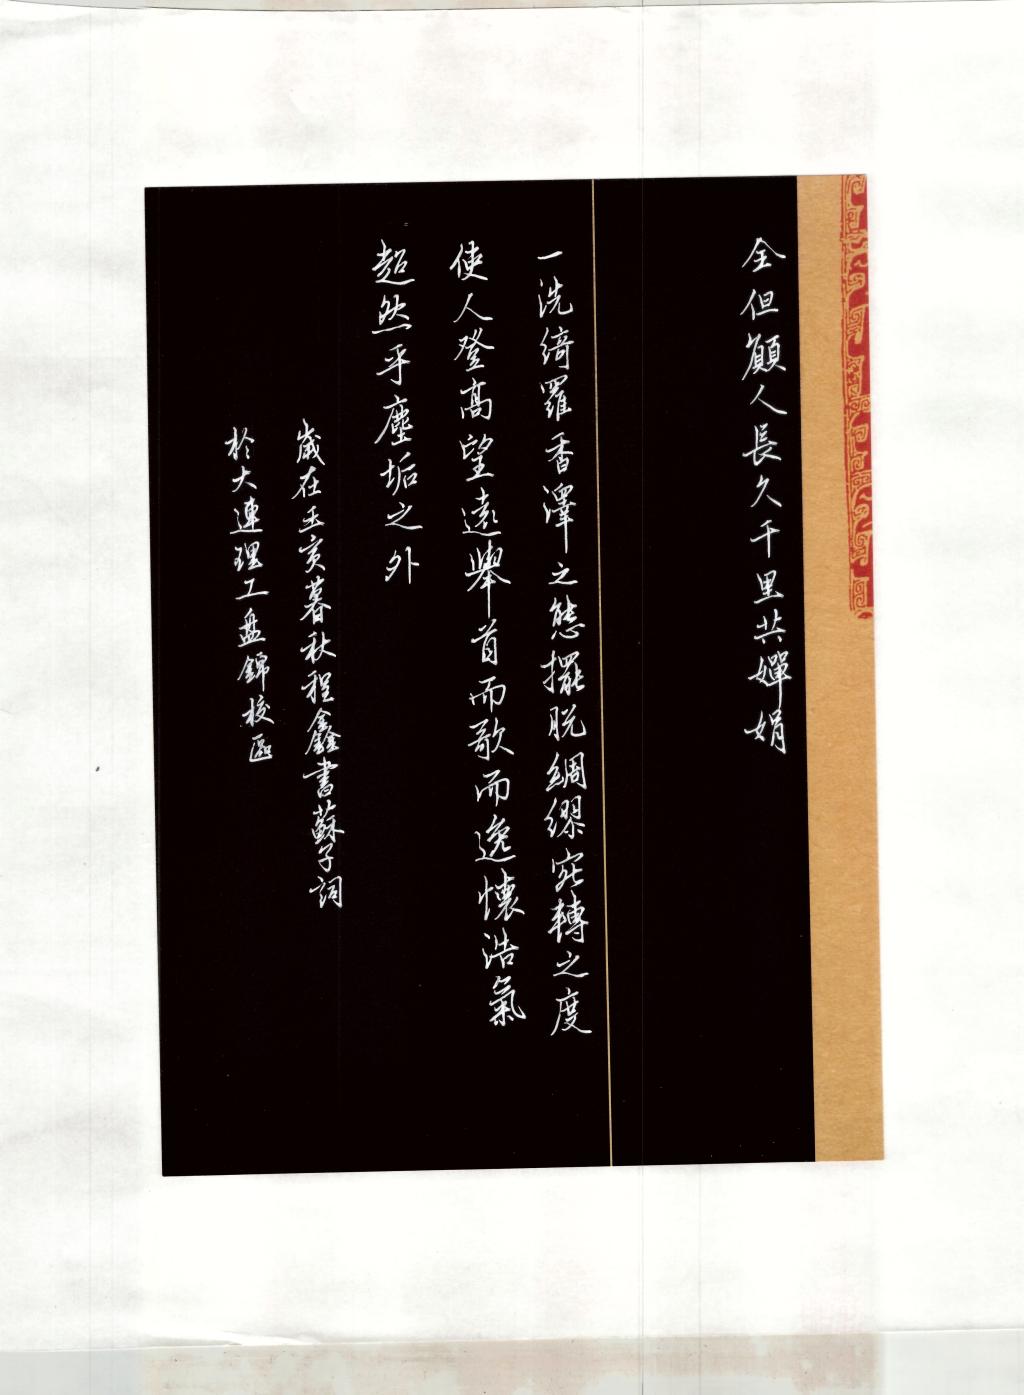 全但願人長久千里共嬋娟
一洗綺羅香澤之態擺脫綢繆宛轉之度
使人登高望遠舉首而歌而逸懷浩氣
超然乎塵垢之外
歲在壬寅暮秋程鑫書蘇子詞
於大連理工盘錦校區